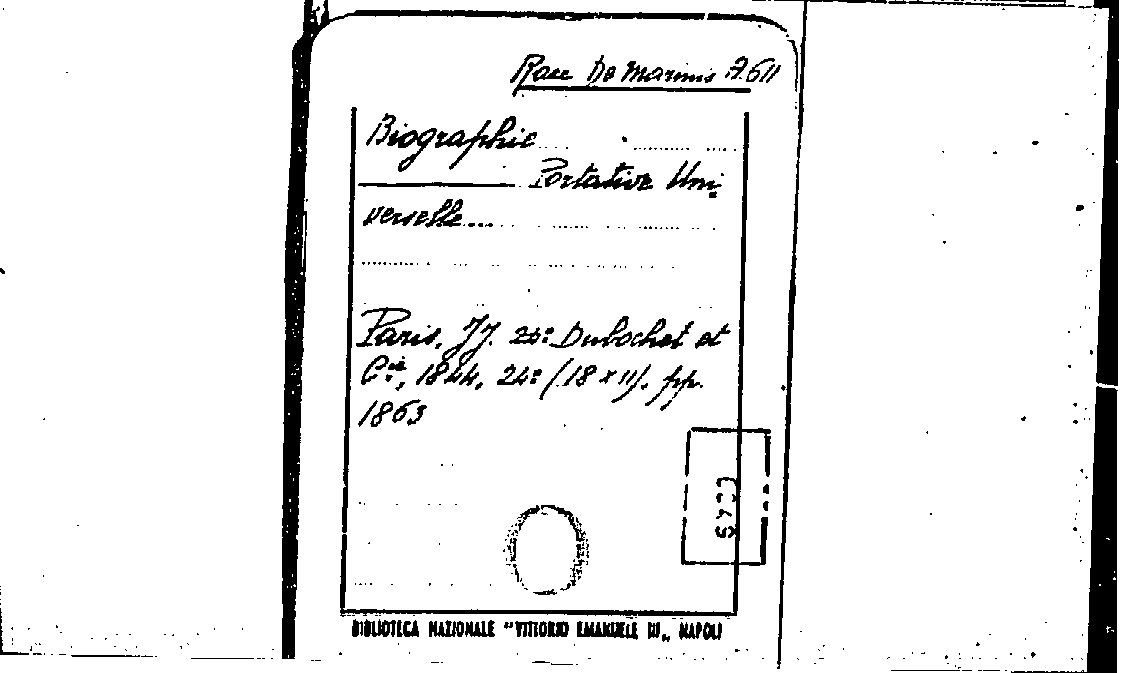 Race De Marinis A 611
Biographie
Portative Uni-
verselle
Paris, JJ. Dubochet et
C.ie, 1844, 24º (18 x 11). pp.
1863
BIBLIOTECA NAZIONALE "VITTORIO EMANUELE III„ NAPOLI